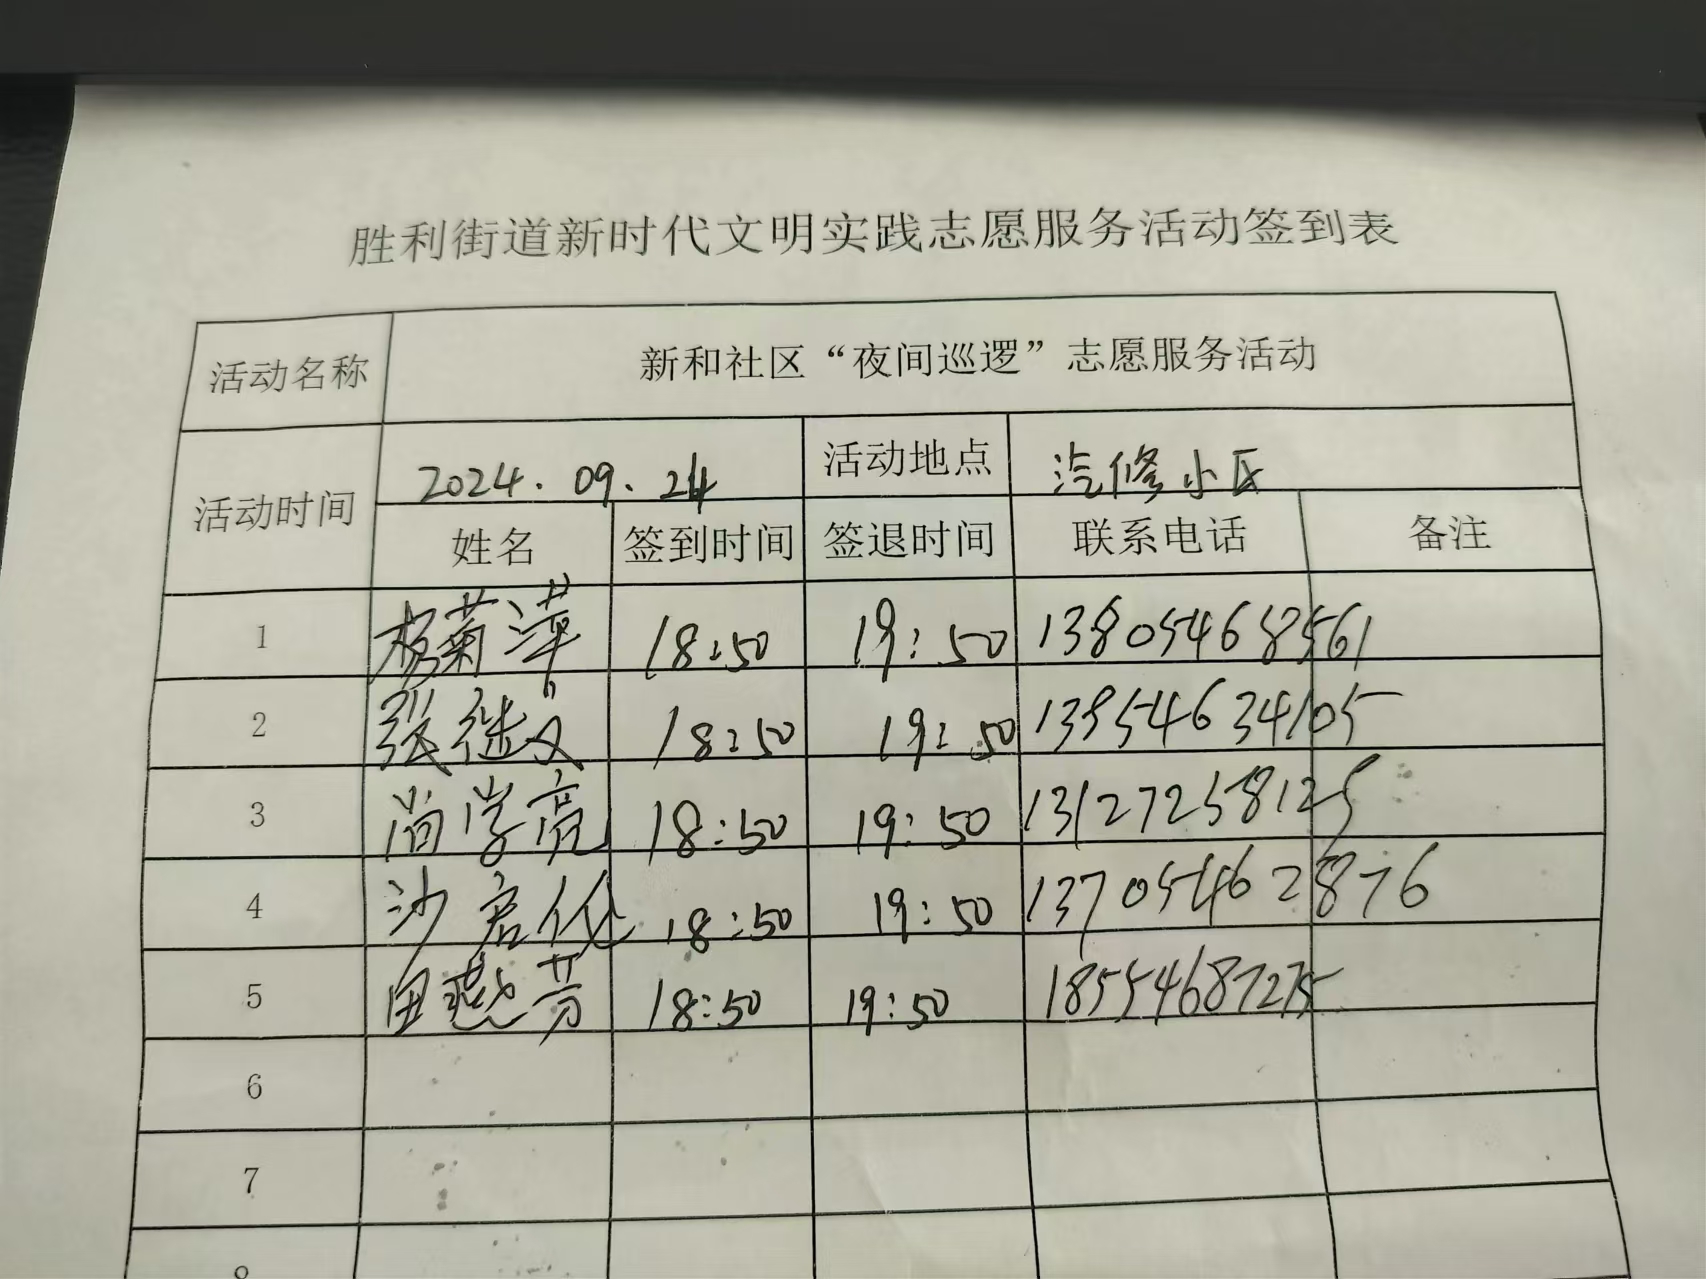 胜利街道新时代文明实践志愿服务活动签到表
活动名称 新和社区“夜间巡逻”志愿服务活动
活动时间 2024.09.24 活动地点 汽修小区
姓名 签到时间 签退时间 联系电话 备注
1 杨菊萍 18:50 19:50 13805468561
2 张继文 18:50 19:50 13954634105
3 尚学亮 18:50 19:50 13127258125
4 沙启伦 18:50 19:50 13705462876
5 田燕芳 18:50 19:50 18554687275
6
7